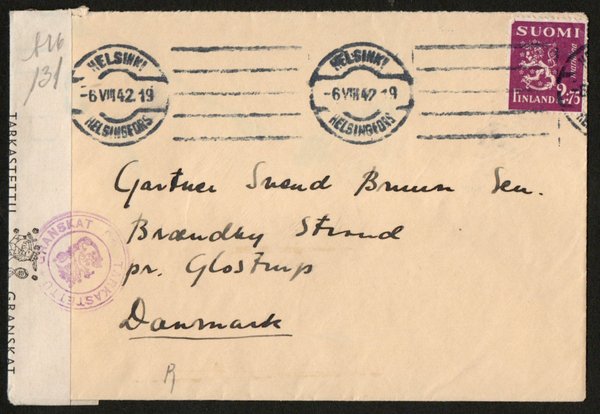 A26
131
HELSINKI
-6.VIII.42.19
HELSINGFORS
HELSINKI
-6.VIII.42 19
HELSINGFORS
SUOMI
FINLAND 2.75
Gartner Svend Bruun Sen.
Brøndby Strand
pr. Glostrup
Danmark
TARKASTETTU
GRANSKAT
GRANSKAT
TARKASTETTU
R